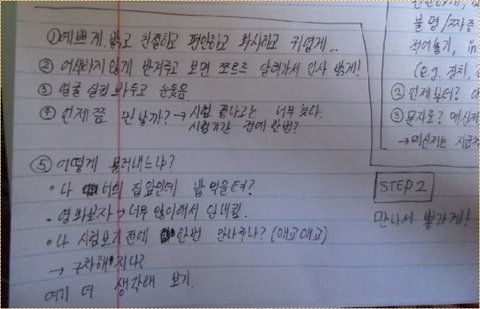 ① 예쁘게 밝고 친절하고 편안하고 화사하고 귀엽게..
② 어색하지 않게 반겨주고 보면 쪼르르 달려가서 인사 밝게!
③ 얼굴 살펴봐주고 눈웃음
④ 언제쯤 만날까? → 시험 끝나고는 너무 늦다.
시험기간 전에 한번?
⑤ 어떻게 불러내느냐?
· 나 너희 집 앞인데 밥 먹을텨?
· 영화보자 → 너무 많이해서 안내킴.
· 나 시험보기 전에 한번 만나주나? (애교애교)
→ 구차해지나?
여기 더 생각해 보기.
불명/
적어놓기, in
(e.g. 정치,
② 언제부터?
③ 문자로?
STEP 2
만나서